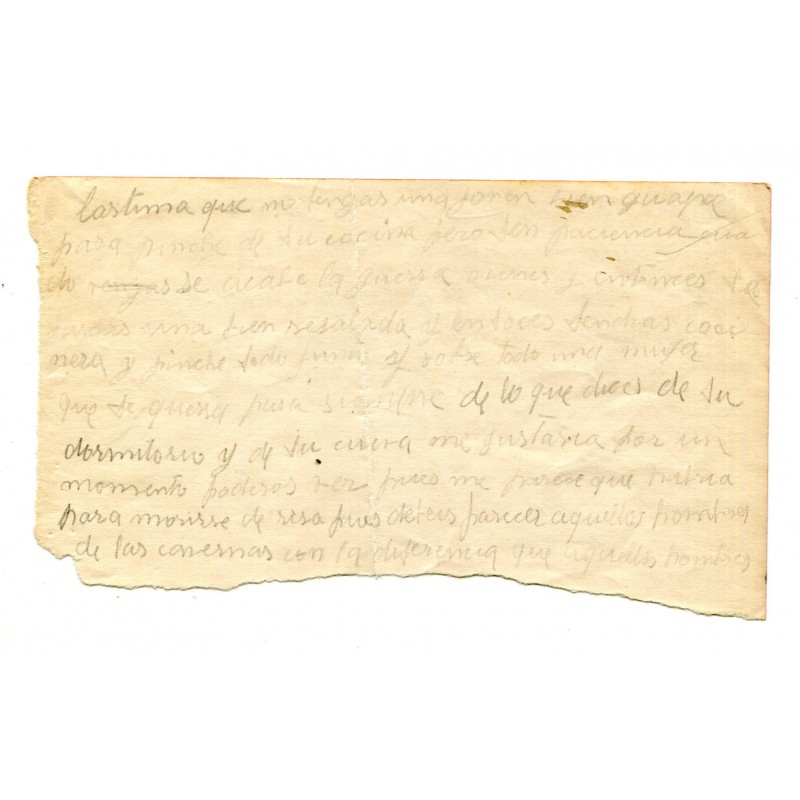 lastima que no tengas una joven bien guapa
para pinche de tu cocina pero ten paciencia cua
do vengas se acabe la guerra vienes y entonces te
buscas una bien resalada y entoces tendras coci
nera y pinche todo junto y sobre todo una mujer
que te querra para siempre de lo que dices de tu
dormitorio y de tu cueva me gustaria por un
momento poderos ver pues me parece que habria
para morirse de resa pues debeis parecer aquellos hombres
de las cavernas con la diferencia que aquellos hombres